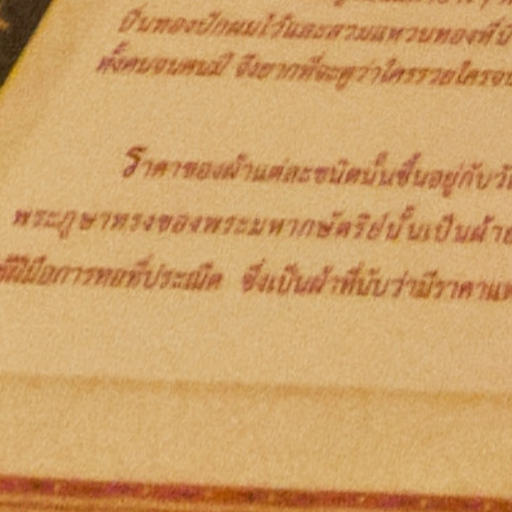 ปิ่นทองปักผมไว้และสวมแหวนทองที่นิ
ทั้งคนจนคนมี จึงยากที่จะดูว่าใครรวยใครจน
ราคาของผ้าแต่ละชนิดนั้นขึ้นอยู่กับวั
พระภูษาทรงของพระมหากษัตริย์นั้นเป็นผ้า
ฝีมือการทอที่ประณีต ซึ่งเป็นผ้าที่นับว่ามีราคาแพ